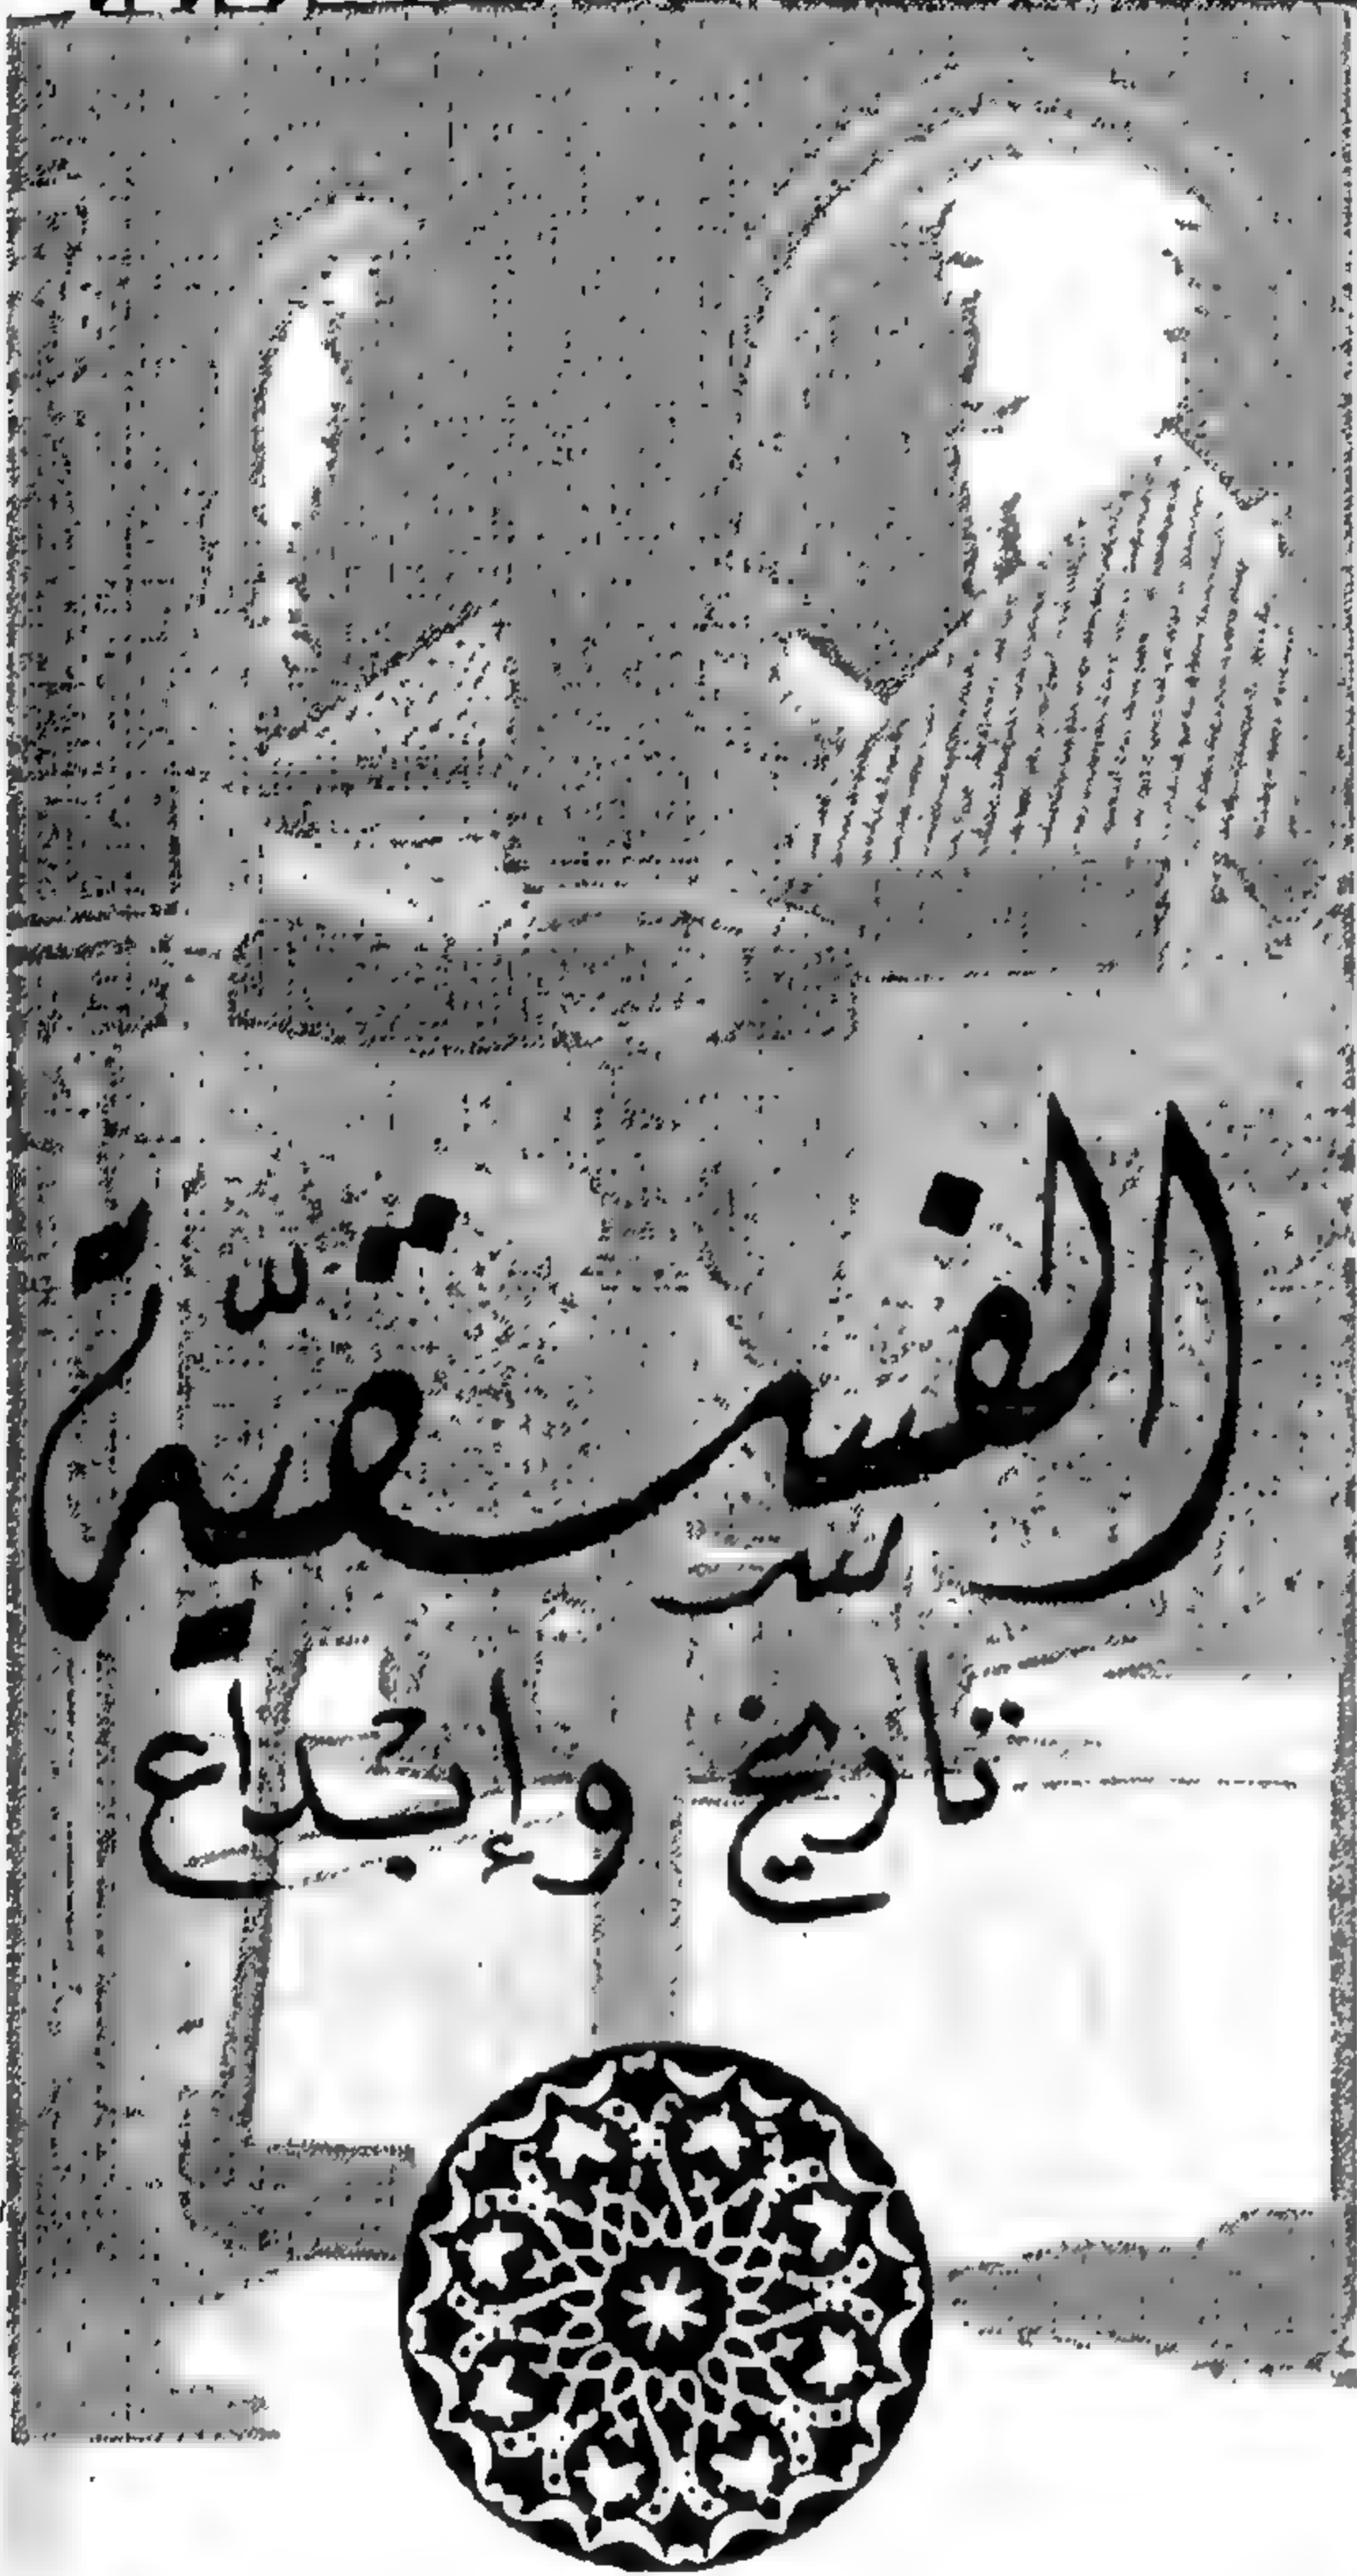 الفسقية
تاريخ وإبداع